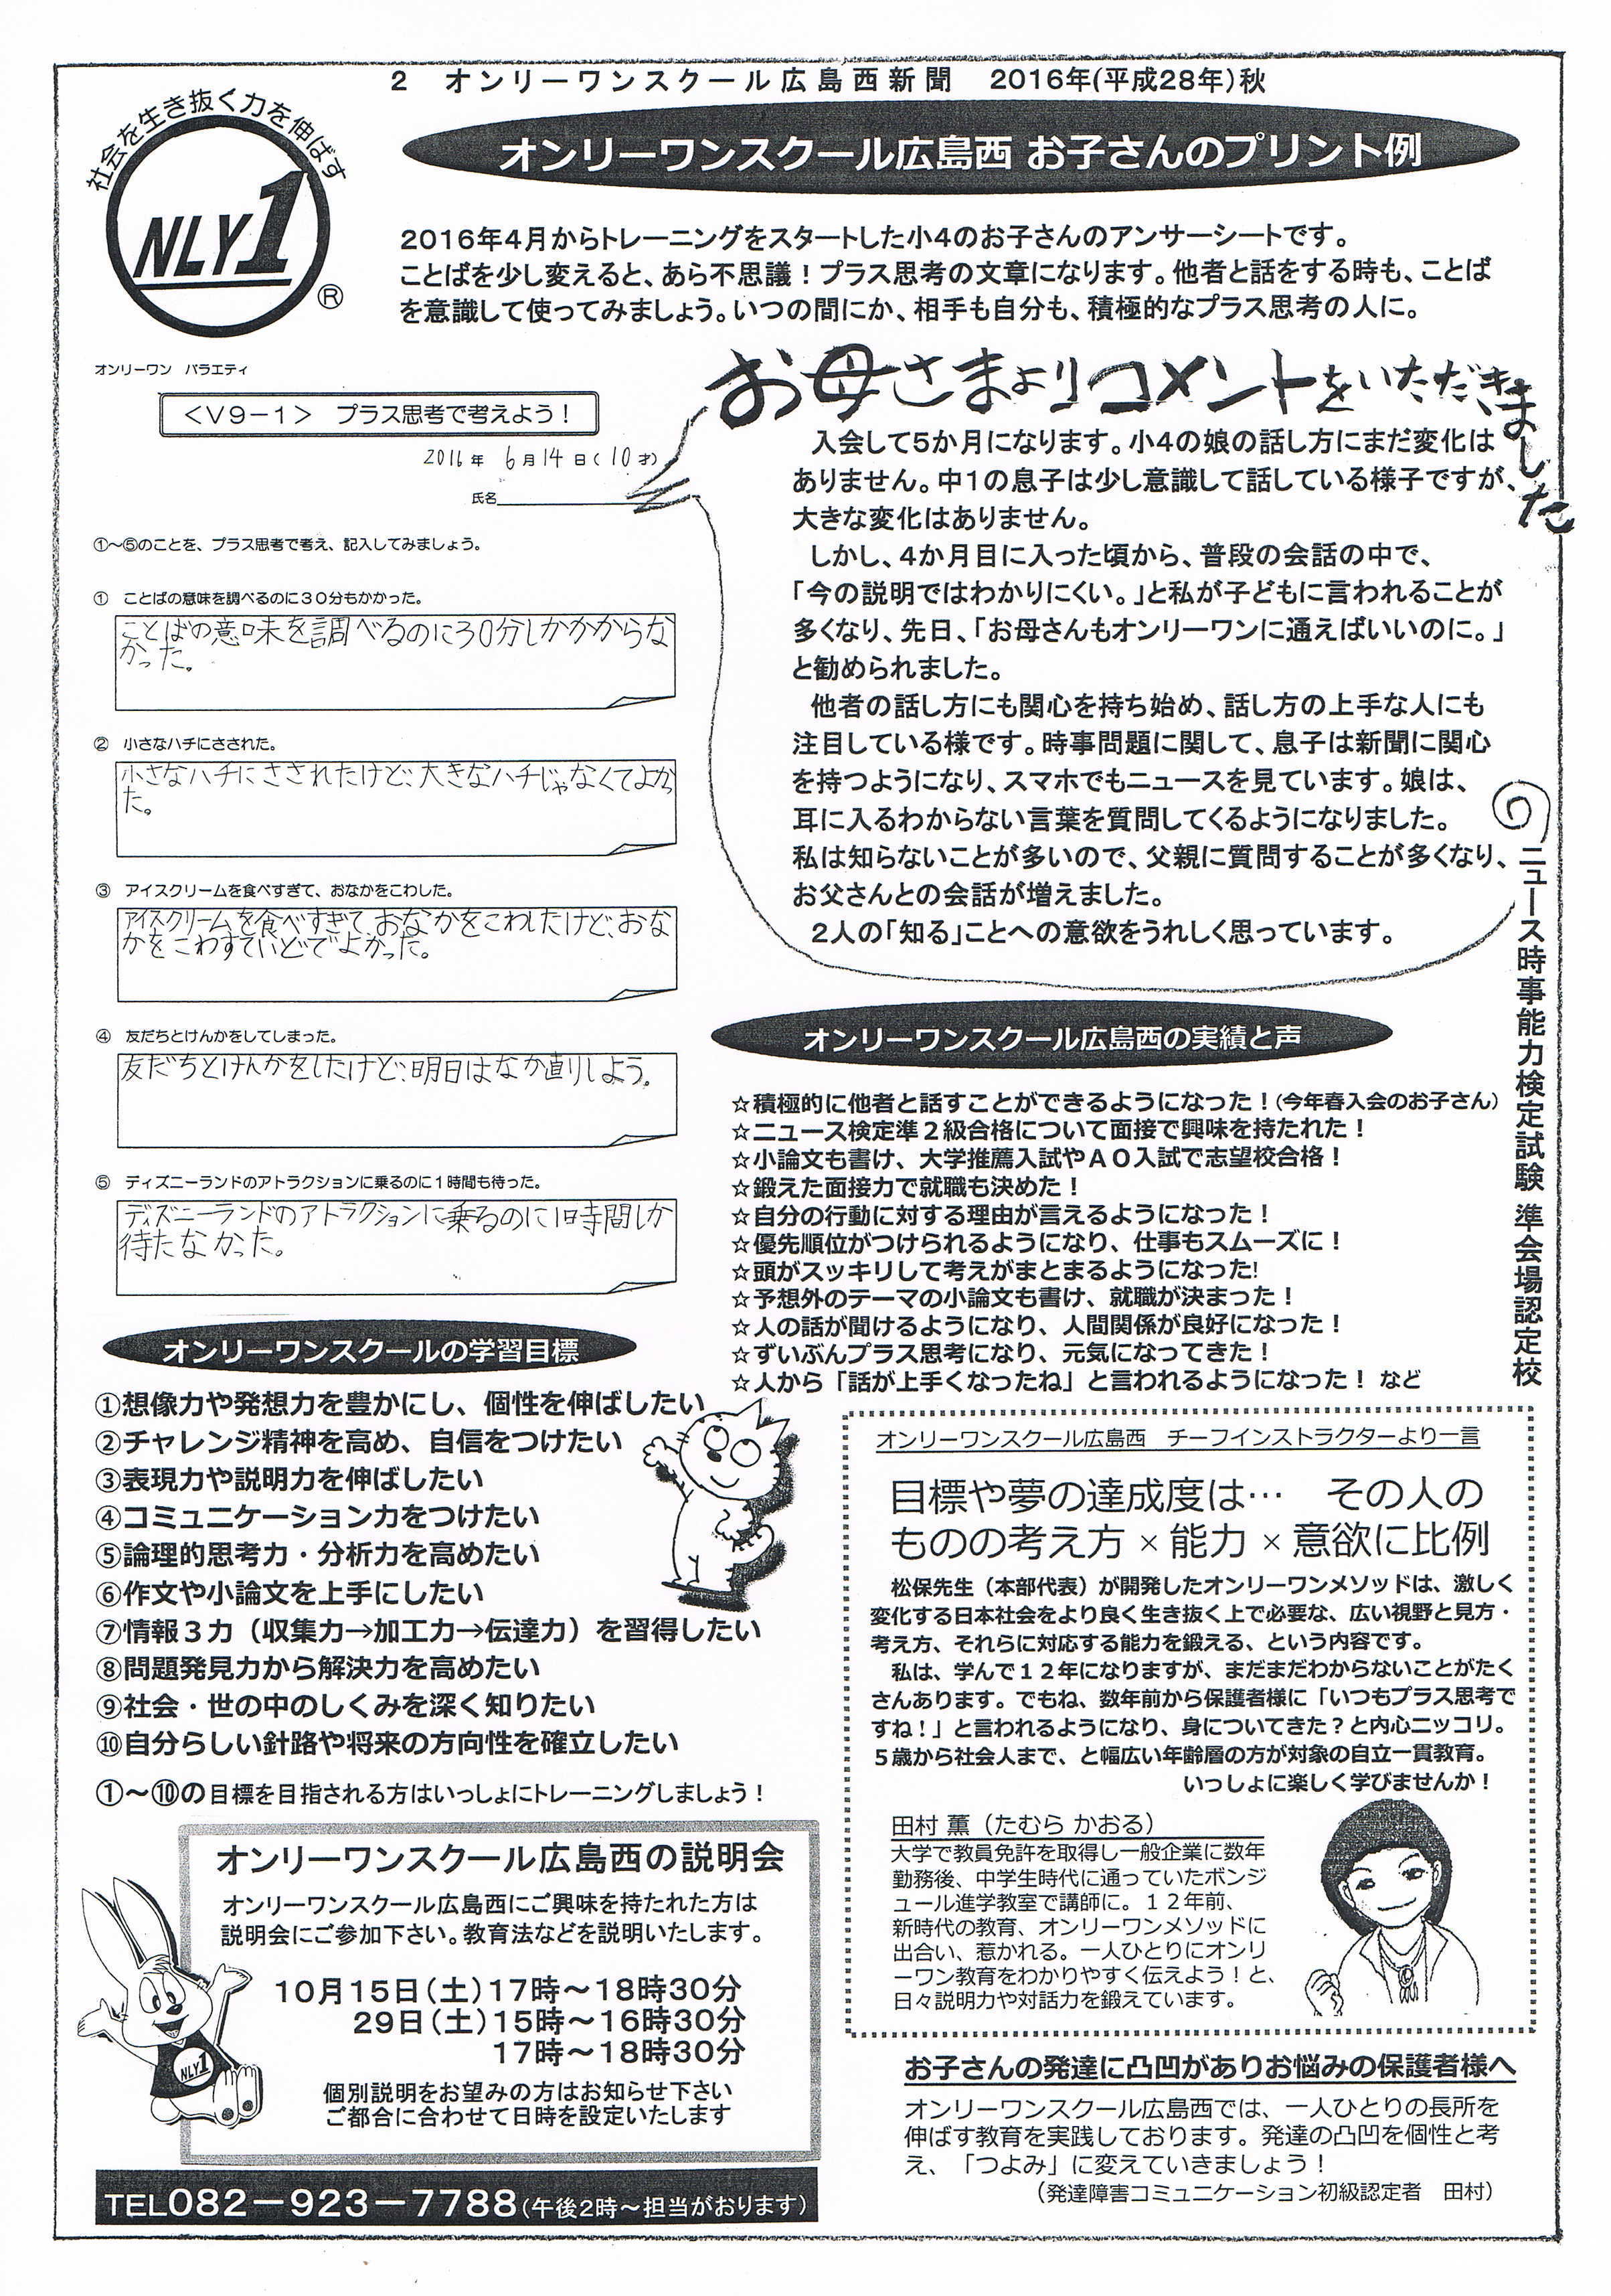 2 オンリーワンスクール広島西新聞 2016年(平成28年)秋
社会を生き抜く力を伸ばす
NLY1
®
オンリーワンスクール広島西 お子さんのプリント例
2016年4月からトレーニングをスタートした小4のお子さんのアンサーシートです。
ことばを少し変えると、あら不思議！プラス思考の文章になります。他者と話をする時も、ことば
を意識して使ってみましょう。いつの間にか、相手も自分も、積極的なプラス思考の人に。
オンリーワン バラエティ
＜V9－1＞ プラス思考で考えよう！
2016年 6月14日(10才)
氏名
①～⑤のことを、プラス思考で考え、記入してみましょう。
① ことばの意味を調べるのに30分もかかった。
ことばの意味を調べるのに30分しかかからな
かった。
② 小さなハチにさされた。
小さなハチにさされたけど、大きなハチじゃなくてよかっ
た。
③ アイスクリームを食べすぎて、おなかをこわした。
アイスクリームを食べすぎて、おなかをこわしたけど、おな
かをこわすていどでよかった。
④ 友だちとけんかをしてしまった。
友だちとけんかをしたけど、明日はなか直りしよう。
⑤ ディズニーランドのアトラクションに乗るのに1時間も待った。
ディズニーランドのアトラクションに乗るのに1時間しか
待たなかった。
お母さまよりコメントをいただきました
入会して5か月になります。小4の娘の話し方にまだ変化は
ありません。中1の息子は少し意識して話している様子ですが、
大きな変化はありません。
しかし、4か月目に入った頃から、普段の会話の中で、
「今の説明ではわかりにくい。」と私が子どもに言われることが
多くなり、先日、「お母さんもオンリーワンに通えばいいのに。」
と勧められました。
他者の話し方にも関心を持ち始め、話し方の上手な人にも
注目している様です。時事問題に関して、息子は新聞に関心
を持つようになり、スマホでもニュースを見ています。娘は、
耳に入るわからない言葉を質問してくるようになりました。
私は知らないことが多いので、父親に質問することが多くなり、
お父さんとの会話が増えました。
2人の「知る」ことへの意欲をうれしく思っています。
ニュース時事能力検定試験 準会場認定校
オンリーワンスクール広島西の実績と声
☆積極的に他者と話すことができるようになった！(今年春入会のお子さん)
☆ニュース検定準２級合格について面接で興味を持たれた！
☆小論文も書け、大学推薦入試やＡＯ入試で志望校合格！
☆鍛えた面接力で就職も決めた！
☆自分の行動に対する理由が言えるようになった！
☆優先順位がつけられるようになり、仕事もスムーズに！
☆頭がスッキリして考えがまとまるようになった!
☆予想外のテーマの小論文も書け、就職が決まった！
☆人の話が聞けるようになり、人間関係が良好になった！
☆ずいぶんプラス思考になり、元気になってきた！
☆人から「話が上手くなったね」と言われるようになった！ など
オンリーワンスクールの学習目標
①想像力や発想力を豊かにし、個性を伸ばしたい
②チャレンジ精神を高め、自信をつけたい
③表現力や説明力を伸ばしたい
④コミュニケーション力をつけたい
⑤論理的思考力・分析力を高めたい
⑥作文や小論文を上手にしたい
⑦情報３力（収集力→加工力→伝達力）を習得したい
⑧問題発見力から解決力を高めたい
⑨社会・世の中のしくみを深く知りたい
⑩自分らしい針路や将来の方向性を確立したい
①～⑩の目標を目指される方はいっしょにトレーニングしましょう！
オンリーワンスクール広島西の説明会
オンリーワンスクール広島西にご興味を持たれた方は
説明会にご参加下さい。教育法などを説明いたします。
10月15日(土)17時～18時30分
29日(土)15時～16時30分
17時～18時30分
個別説明をお望みの方はお知らせ下さい
ご都合に合わせて日時を設定いたします
NLY1
TEL082－923－7788(午後2時～担当がおります)
オンリーワンスクール広島西 チーフインストラクターより一言
目標や夢の達成度は… その人の
ものの考え方×能力×意欲に比例
松保先生（本部代表）が開発したオンリーワンメソッドは、激しく
変化する日本社会をより良く生き抜く上で必要な、広い視野と見方・
考え方、それらに対応する能力を鍛える、という内容です。
私は、学んで１２年になりますが、まだまだわからないことがたく
さんあります。でもね、数年前から保護者様に「いつもプラス思考で
すね！」と言われるようになり、身についてきた？と内心ニッコリ。
５歳から社会人まで、と幅広い年齢層の方が対象の自立一貫教育。
いっしょに楽しく学びませんか！
田村 薫（たむら かおる）
大学で教員免許を取得し一般企業に数年
勤務後、中学生時代に通っていたボンジ
ュール進学教室で講師に。１２年前、
新時代の教育、オンリーワンメソッドに
出合い、惹かれる。一人ひとりにオンリ
ーワン教育をわかりやすく伝えよう！と、
日々説明力や対話力を鍛えています。
お子さんの発達に凸凹がありお悩みの保護者様へ
オンリーワンスクール広島西では、一人ひとりの長所を
伸ばす教育を実践しております。発達の凸凹を個性と考
え、「つよみ」に変えていきましょう！
（発達障害コミュニケーション初級認定者 田村）